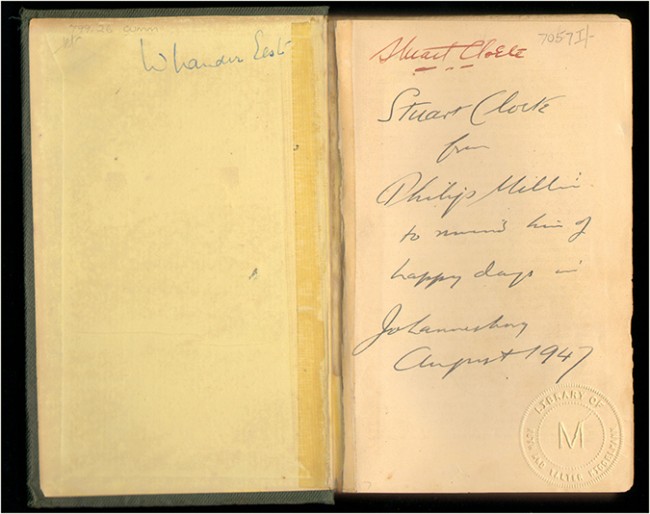 799.26
Stuart Cloete
7057I/-
Stuart Cloete
from
Philip Millin
to remind him of
happy days in
Johannesburg
August 1947
LIBRARY OF
M
WALTER